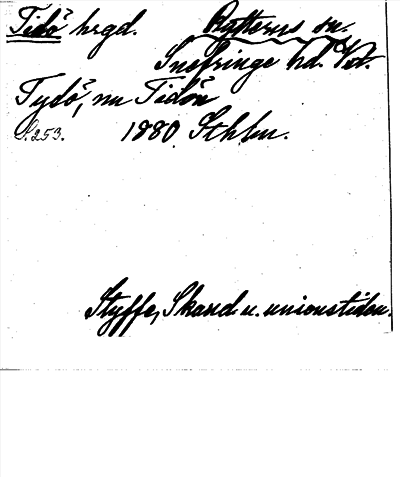 Tidö hrgd. Rytterns sn.
Snefringe hd. Vstm.
Tydö, nu Tidön
S. 253. 1880 Sthlm.
Styffe, Skand. u. unionstiden.